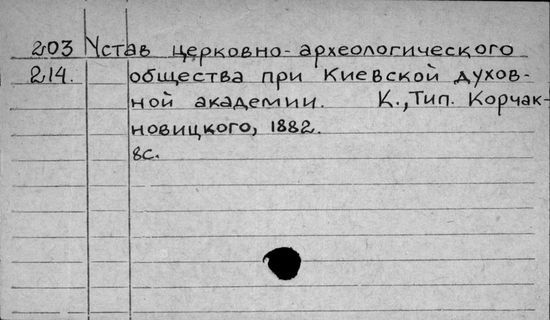 203 Устав церковно-археологического
214. общества при Киевской духов-
ной академии. К., Тип. Корчак-
новицкого, 1882.
8с.